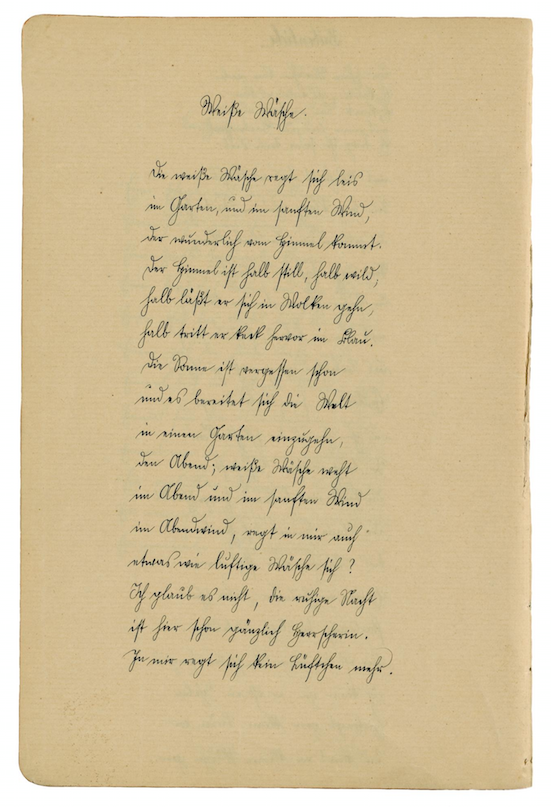 Weiße Wäsche.
Die weiße Wäsche regt sich leis
im Garten, und im sanften Wind,
der wunderlich vom Himmel kommt.
Der Himmel ist halb still, halb wild,
halb läßt er sich in Wolken gehn,
halb tritt er keck hervor im Blau.
Die Sonne ist vergessen schon
und es bereitet sich die Welt
in einen Garten einzugehn,
den Abend; weiße Wäsche weht
im Abend und im sanften Wind
im Abendwind, regt in mir auch
etwas wie luftige Wäsche sich?
Ich glaub es nicht, die ruhige Nacht
ist hier schon gänzlich Herrscherin.
In mir regt sich kein Lüftchen mehr.